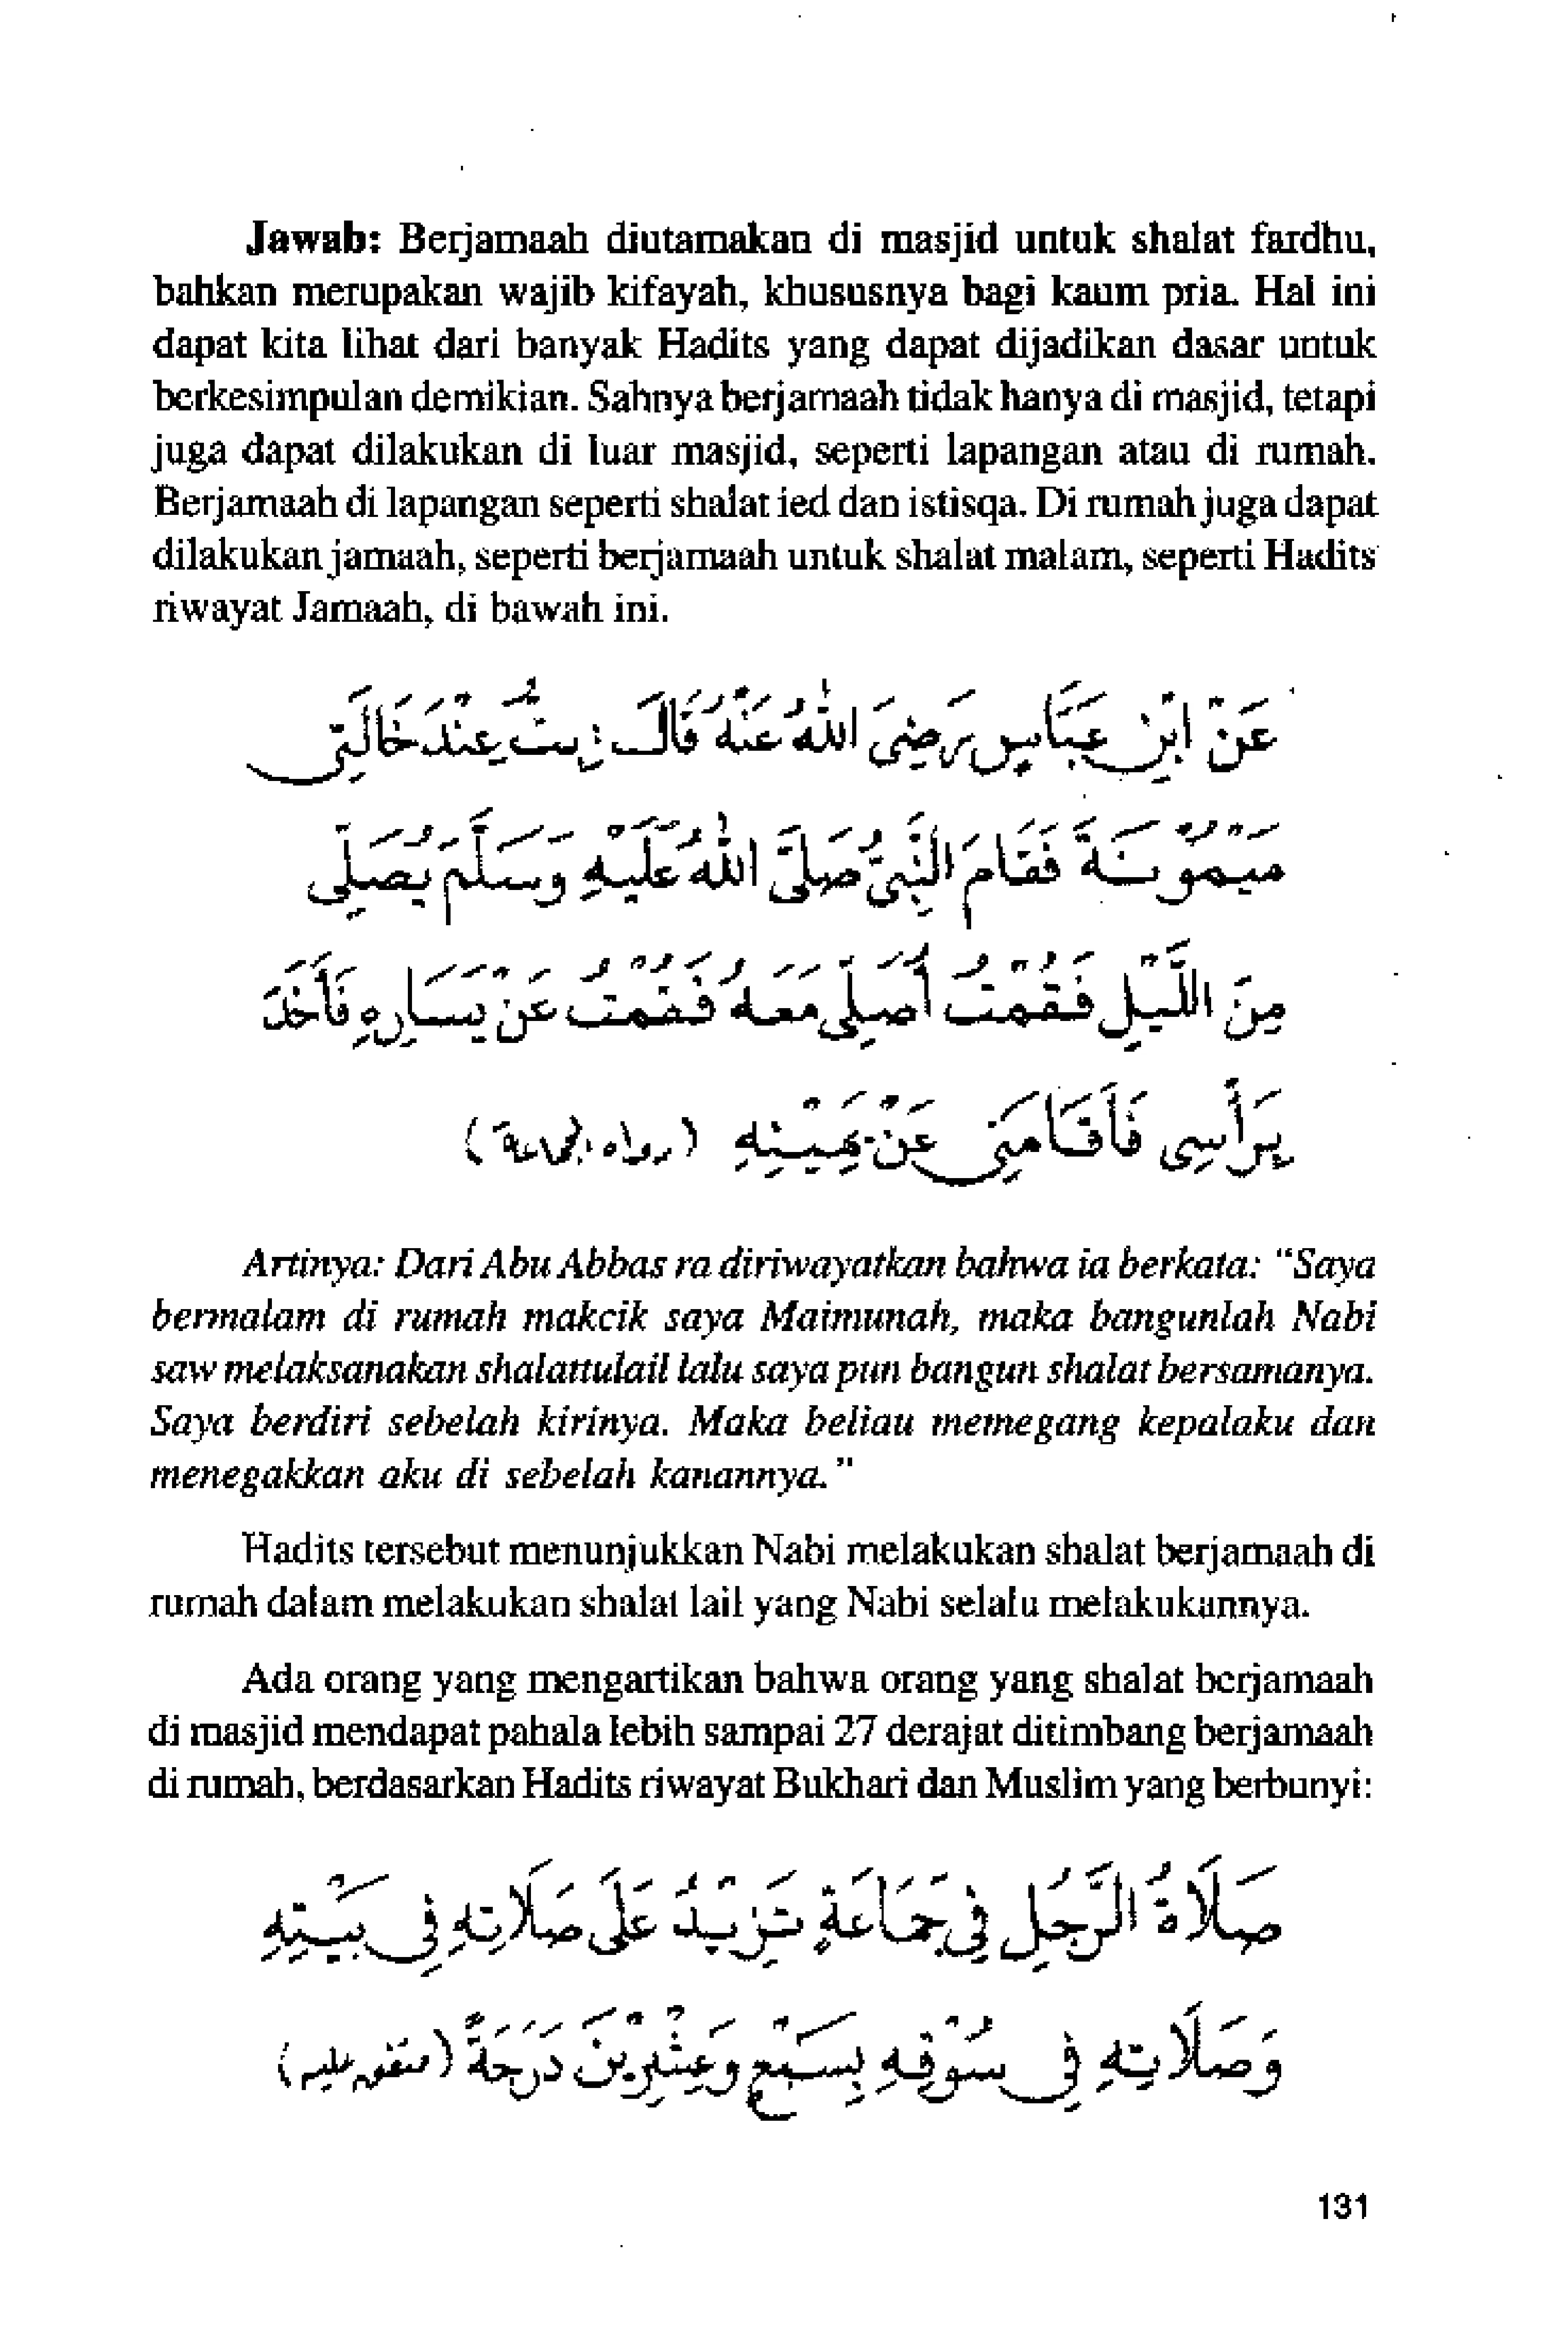 Jawab: Berjamaah diutamakan di masjid untuk shalat fardhu,
bahkan merupakan wajib kifayah, khususnya bagi kaum pria. Hal ini
dapat kita lihat dari banyak Hadits yang dapat dijadikan dasar untuk
berkesimpulan demikian. Sahnya berjamaah tidak hanya di masjid, tetapi
juga dapat dilakukan di luar masjid, seperti lapangan atau di rumah.
Berjamaah di lapangan seperti shalat ied dan istisqa. Di rumah juga dapat
dilakukan jamaah, seperti berjamaah untuk shalat malam, seperti Hadits
riwayat Jamaah, di bawah ini.
عَنْ ابْنِ عَبَّاسٍ رَضِيَ اللهُ عَنْهُ قَالَ : بِتُّ عِنْدَ خَالَتِى
مَيْمُوْنَةَ فَقَامَ النَّبِيُّ صَلَّى اللهُ عَلَيْهِ وَسَلَّمَ يُصَلِّى
مِنَ اللَّيْلِ فَقُمْتُ أُصَلِّى مَعَهُ فَقُمْتُ عَنْ يَسَارِهِ فَأَخَذَ
بِرَأْسِى فَأَقَامَنِى عَنْ يَمِيْنِهِ (رواه الجماعة)
Artinya: Dari Abu Abbas ra diriwayatkan bahwa ia berkata: "Saya
bermalam di rumah makcik saya Maimunah, maka bangunlah Nabi
saw melaksanakan shalattulail lalu saya pun bangun shalat bersamanya.
Saya berdiri sebelah kirinya. Maka beliau memegang kepalaku dan
menegakkan aku di sebelah kanannya."
Hadits tersebut menunjukkan Nabi melakukan shalat berjamaah di
rumah dalam melakukan shalat lail yang Nabi selalu melakukannya.
Ada orang yang mengartikan bahwa orang yang shalat berjamaah
di masjid mendapat pahala lebih sampai 27 derajat ditimbang berjamaah
di rumah, berdasarkan Hadits riwayat Bukhari dan Muslim yang berbunyi:
صَلَاةُ الرَّجُلِ فِي جَمَاعَةٍ تَزِيْدُ عَلَى صَلَاتِهِ فِى بَيْتِهِ
وَصَلَاتِهِ فِى سُوْقِهِ بِسَبْعٍ وَعِشْرِيْنَ دَرَجَةً (متفق عليه)
131